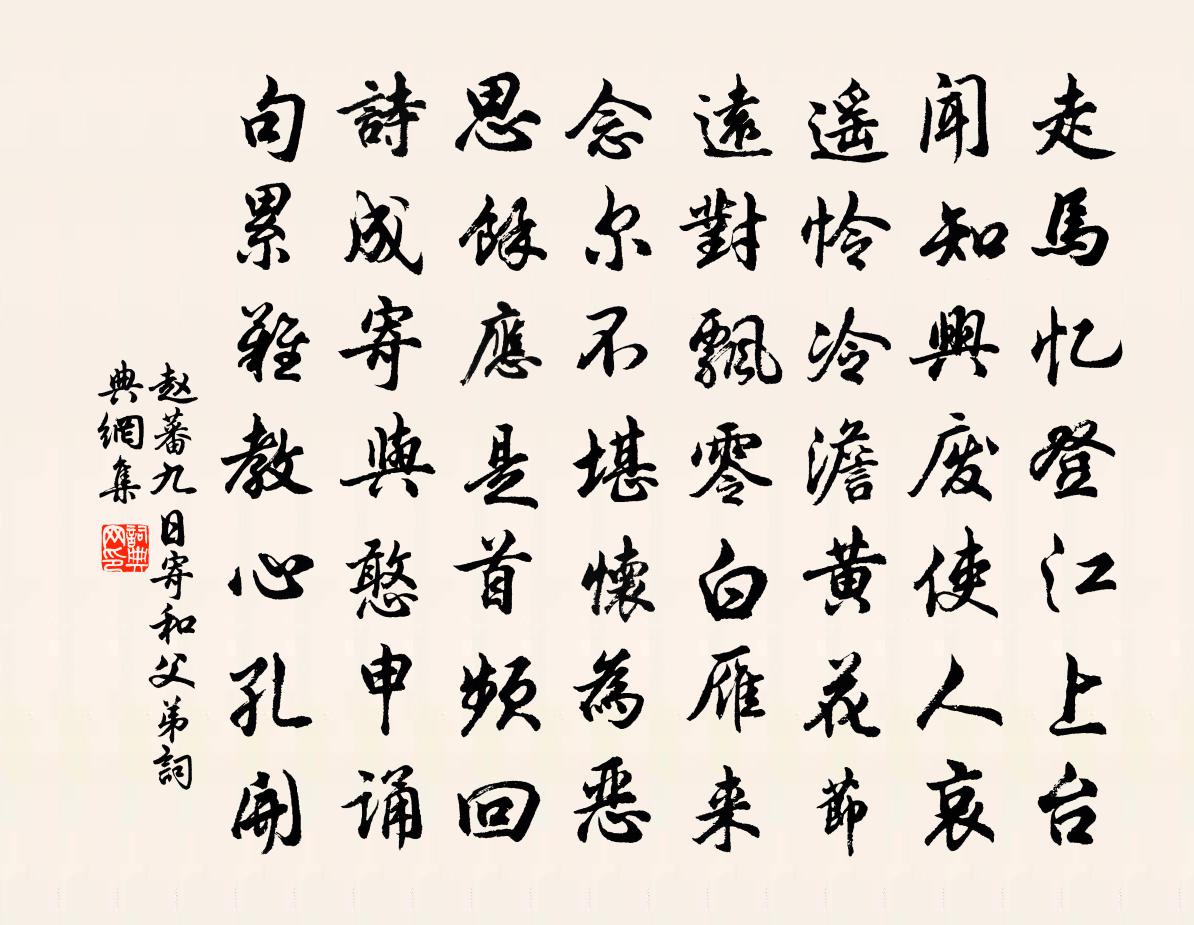 走馬忆登江上台
闻知興废使人哀
遥怜冷澹黄花節
遠對飄零白雁来
念尔不堪懷為恶
思餘應是首频回
詩成寄與憨申诵
句累難教心孔開
赵蕃九日寄和父弟詞
典網集
詞典
网印